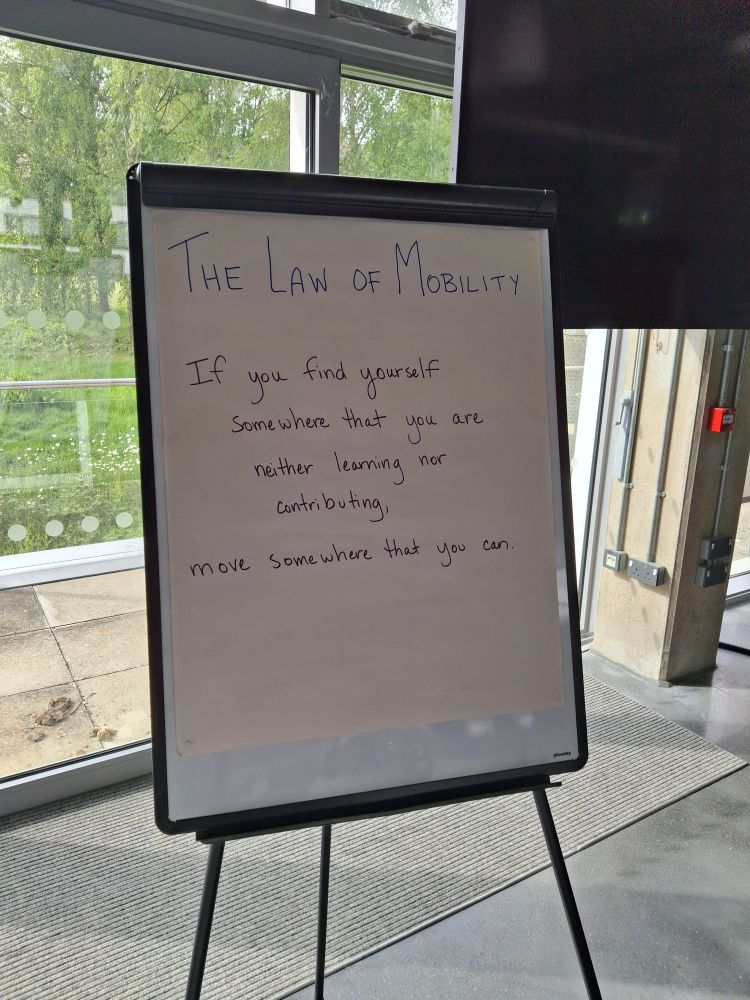 THE LAW OF MOBILITY
If you find yourself
somewhere that you are
neither learning nor
contributing,
move somewhere that you can.